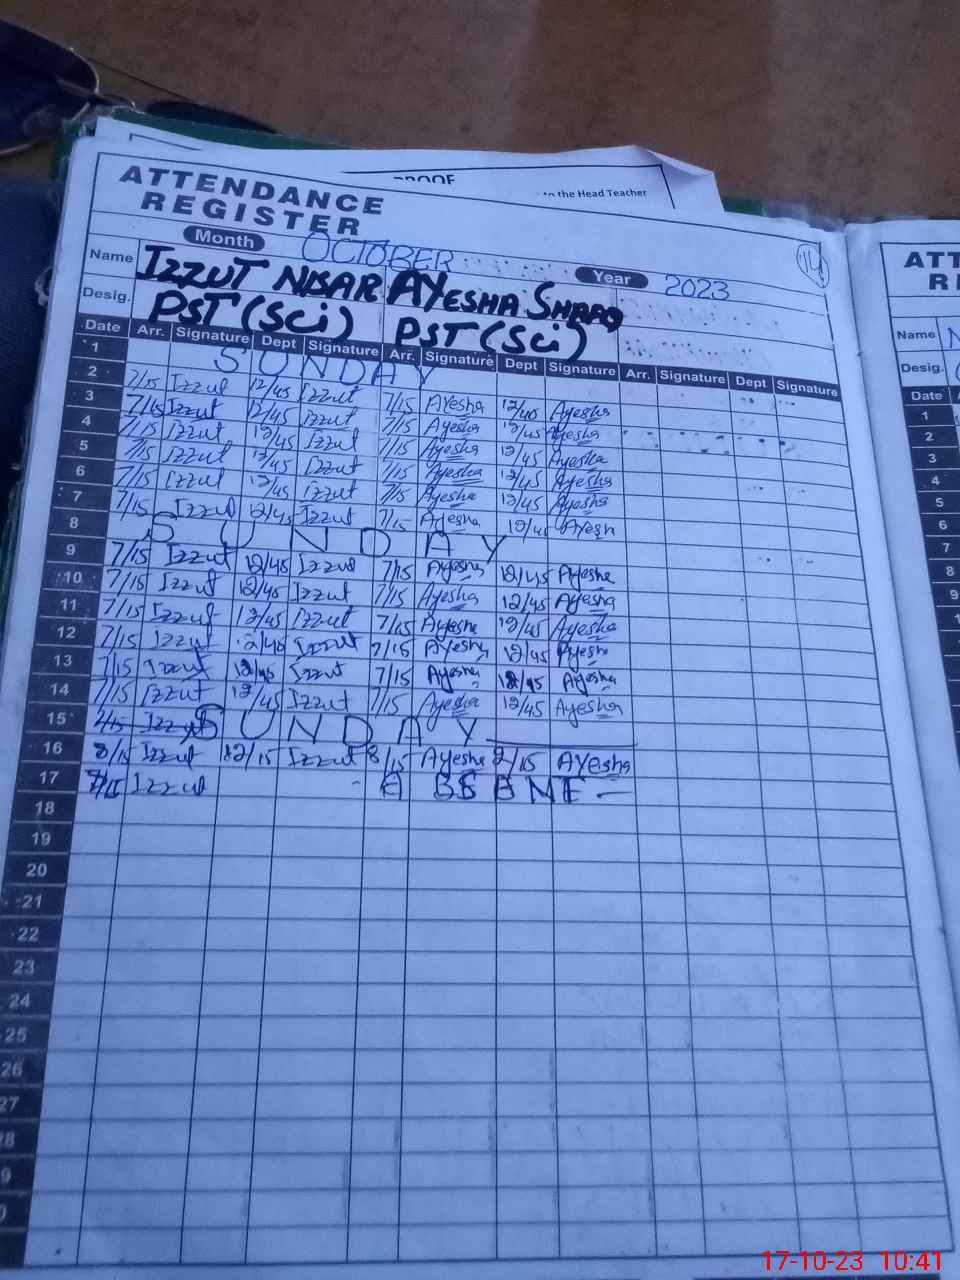 to the Head Teacher
ATTENDANCE
REGISTER
Month OCTOBER Year 2023
14
Name IZZUT NISAR AYESHA
Desig. PST (Sci) PST (Sci)
Date Arr. Signature Dept Signature Arr. Signature Dept Signature Arr. Signature Dept Signature
1 SUNDAY
2 7/15 Izzut 12/45 Izzut 7/15 Ayesha 12/45 Ayesha
3 7/15 Izzut 12/45 Izzut 7/15 Ayesha 12/45 Ayesha
4 7/15 Izzut 12/45 Izzut 7/15 Ayesha 12/45 Ayesha
5 7/15 Izzut 12/45 Izzut 7/15 Ayesha 12/45 Ayesha
6 7/15 Izzut 12/45 Izzut 7/15 Ayesha 12/45 Ayesha
7 7/15 Izzut 12/45 Izzut 7/15 Ayesha 12/45 Ayesh
8 SUNDAY
9 7/15 Izzut 12/45 Izzut 7/15 Ayesha 12/45 Ayesha
10 7/15 Izzut 12/45 Izzut 7/15 Ayesha 12/45 Ayesha
11 7/15 Izzut 12/45 Izzut 7/15 Ayesha 12/45 Ayesha
12 7/15 Izzut 12/45 Izzut 7/15 Ayesha 12/45 Ayesha
13 7/15 Izzut 12/45 Izzut 7/15 Ayesha 12/45 Ayesha
14 7/15 Izzut 12/45 Izzut 7/15 Ayesha 12/45 Ayesha
15 SUNDAY
16 8/15 Izzut 12/15 Izzut 8/15 Ayesha 2/15 Ayesha
17 Izzut
18
19
20
21
22
23
24
25
26
27
ATT
Name
Desig.
Date
1
2
3
4
5
6
7
8
9
17-10-23 10:41